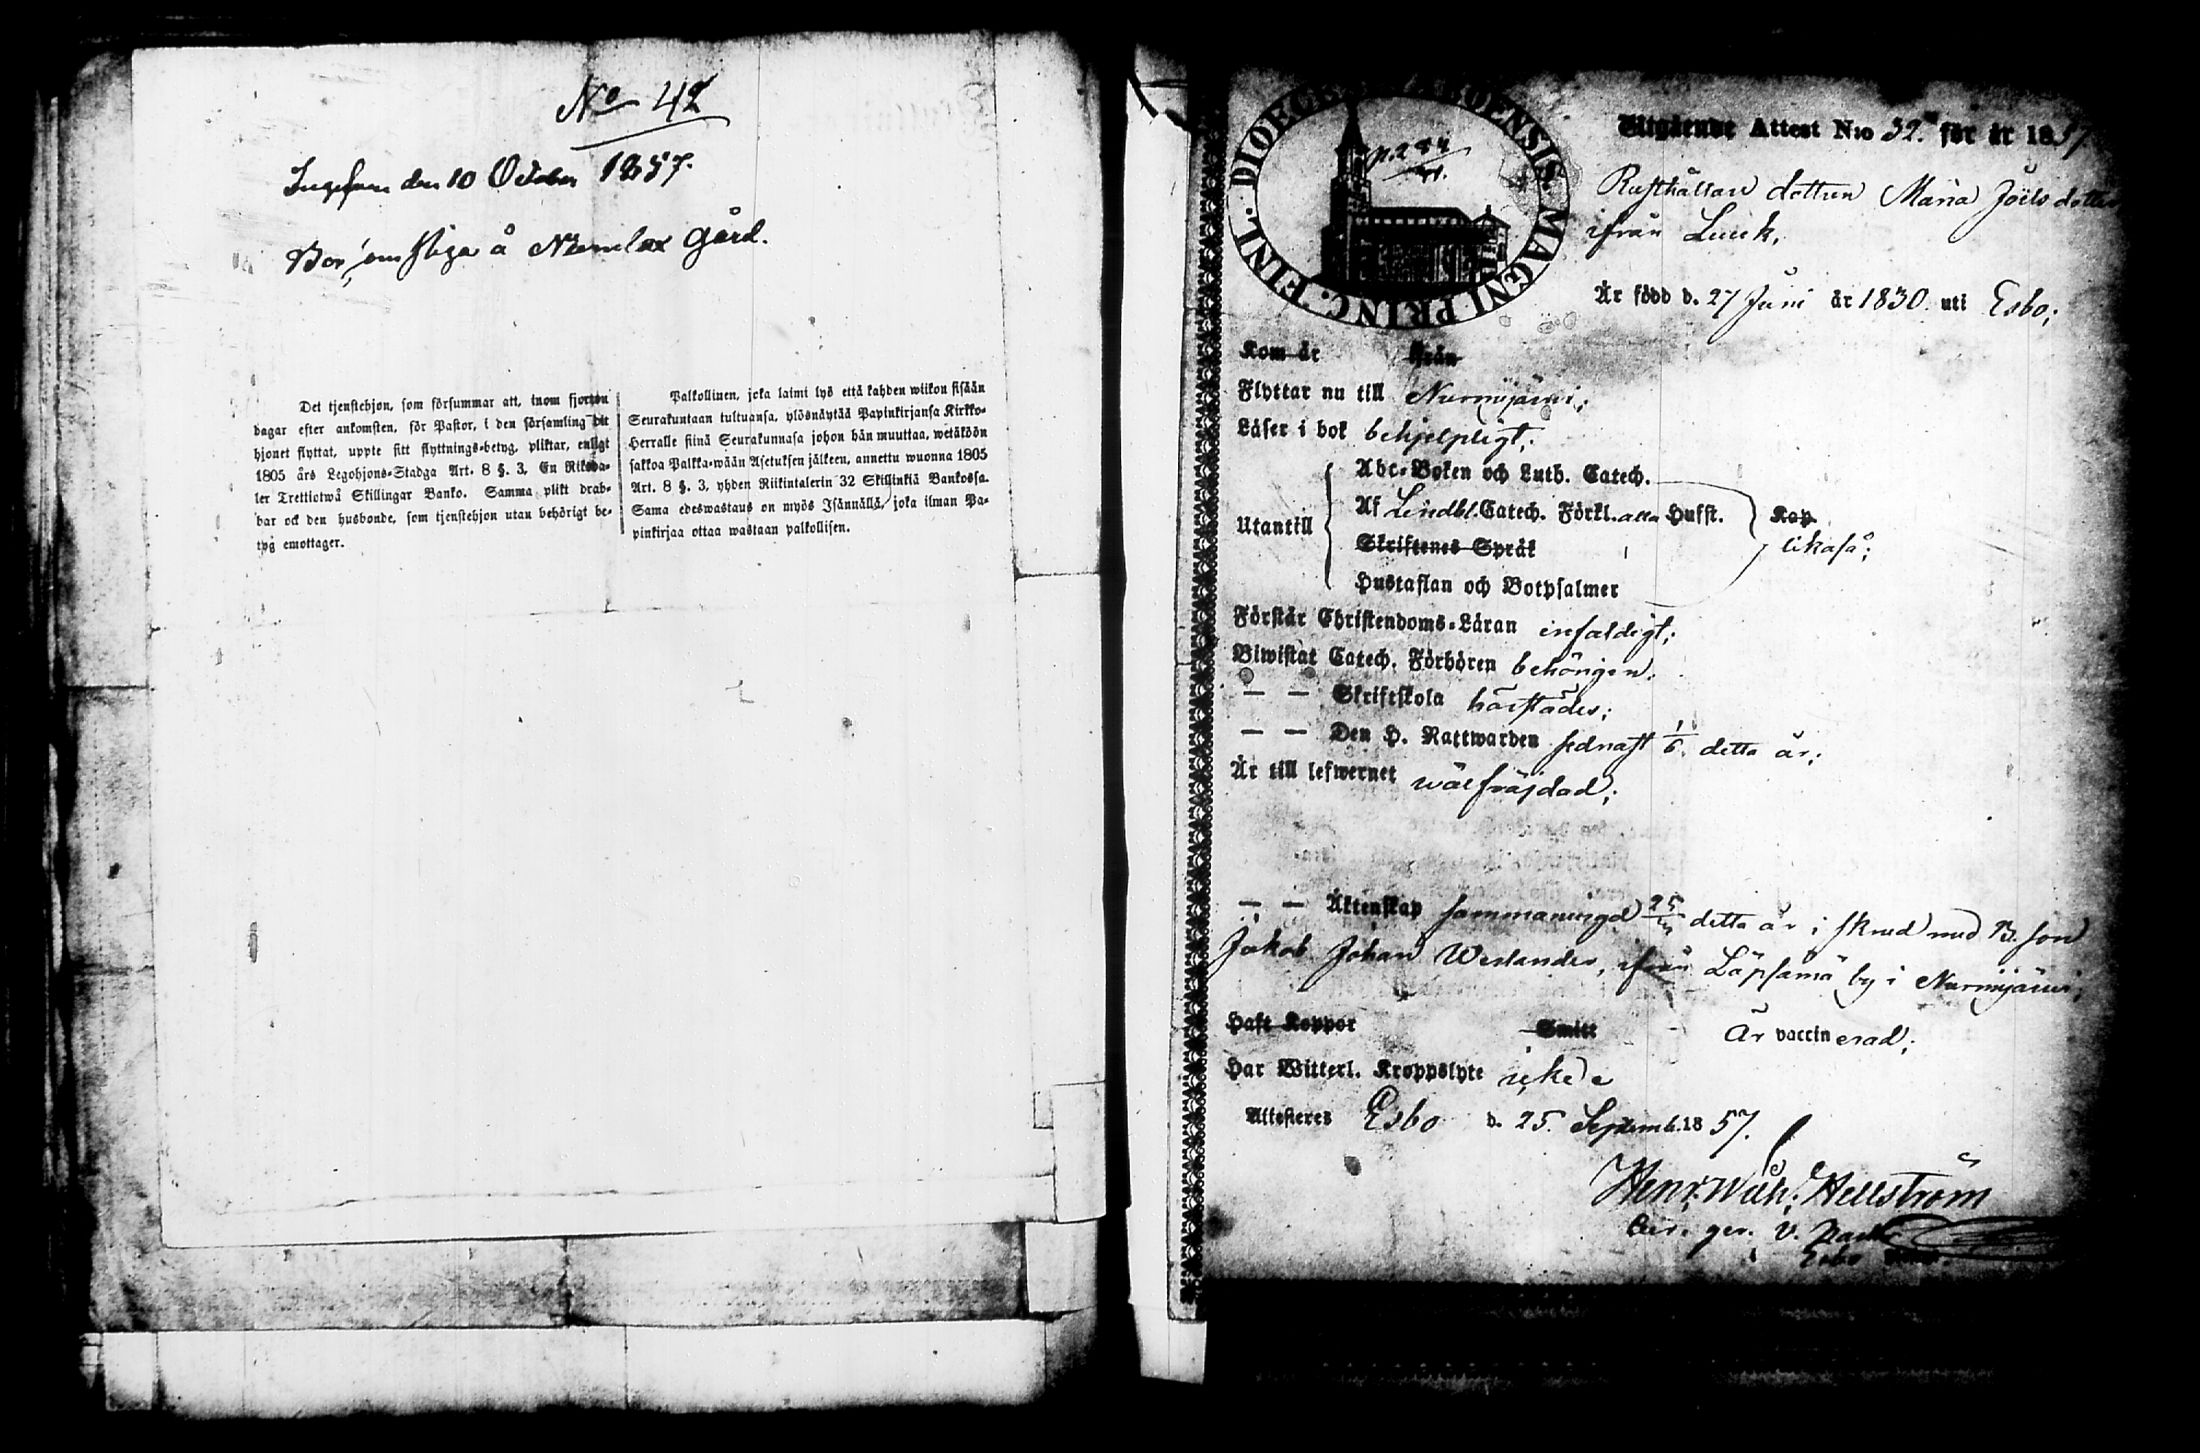 No 42
den 10 October 1857.
å gård.
Det tjenstehjon, som försummar att, inom fjorton
dagar efter ankomsten, för Pastor, i den församling dit
hjonet flyttat, uppte sitt flyttnings-betyg, pliktar, enligt
1805 års Legohjons-Stadga Art. 8 §. 3. En Riksda-
ler Trettiotwå Skillingar Banko. Samma plikt drab-
bar ock den husbonde, som tjenstehjon utan behörigt be-
tyg emottager.
Palkollinen, joka laimi lyö että kahden wiikon sisään
Seurakuntaan tultuansa, ylösnäytää Papinkirjansa Kirkko-
Herralle siinä Seurakunnasa johon hän muuttaa, wetäköön
sakkoa Palkka-wään Asetuksen jälkeen, annettu wuonna 1805
Art. 8 §. 3, yhden Riikintalerin 32 Skillinkiä Bankossa.
Sama edeswastaus on myös Isännällä, joka ilman Pa-
pinkirjaa ottaa wastaan palkollisen.
DIOECESIS ABOENSIS. MAGNI PRINC. FINL.
Utgående Attest N:o 32. för år 1857
Rusthållare dottren Maria Joëls dotter
ifrån
Är född d. 27 Juni år 1830 uti Esbo;
Kom år ifrån
Flyttar nu till Nurmijärvi;
Läser i bok behjelpligt;
Utantill
Abc-Boken och Luth. Catech.
Af Lindbl. Catech. Förkl. alla Hufst.
Skriftenes Språk
Hustaflan och Botpsalmer
Kap.
likaså;
Förstår Christendoms-Läran enfaldigt;
Biwistat Catech. Förhören behörigen.
— — Skriftskola härstädes;
— — Den H. Nattwarden sednast 1/6. detta år;
Är till lefwernet wälfräjdad;
— — Äktenskap sammanvigd 25/ detta år i med B. son
Jakob Johan Weslander, ifrån Läpsämä by i Nurmijärvi;
Haft Koppor Smitt Är vaccinerad;
Har Witterl. Kroppslyte icke
Attesteres Esbo d. 25. Septemb. 1857.
Henr. Wilh. Hellström
v.
Esbo